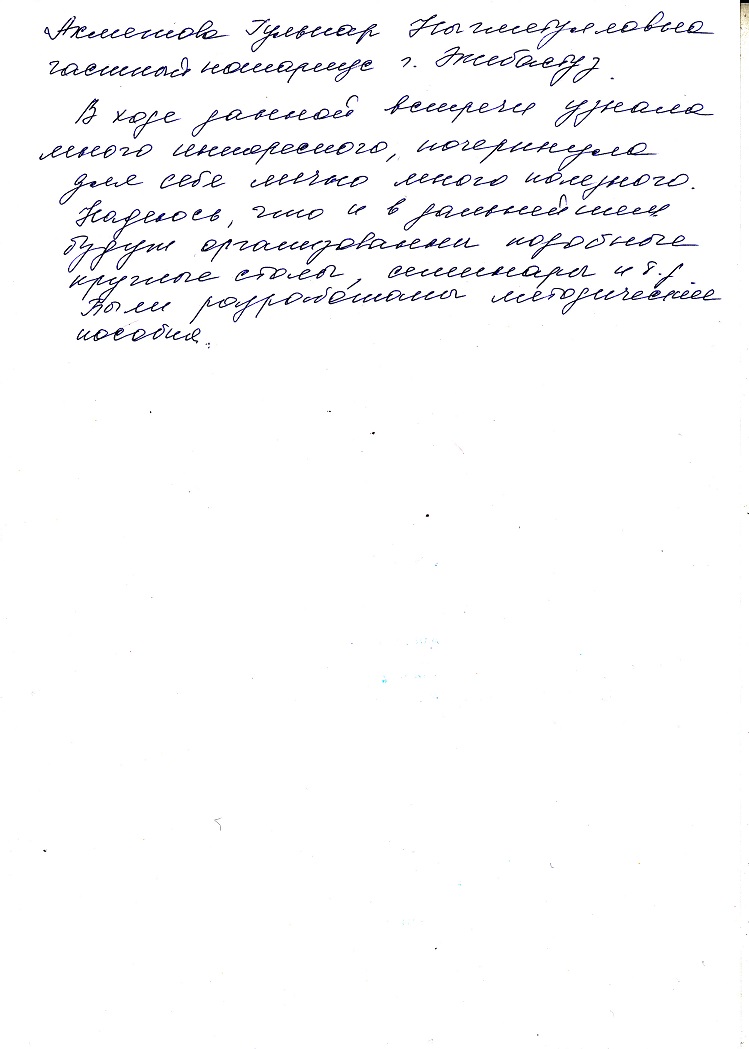 Ахметова Гульнар Ныгметулловна
частный нотариус г. Экибастуз
В ходе данной встречи узнала
много интересного, почерпнула
для себя лично много полезного.
Надеюсь, что и в дальнейшем
будут организованны подобные
круглые столы, семинары и т.д
Были разработаны методические
пособия.